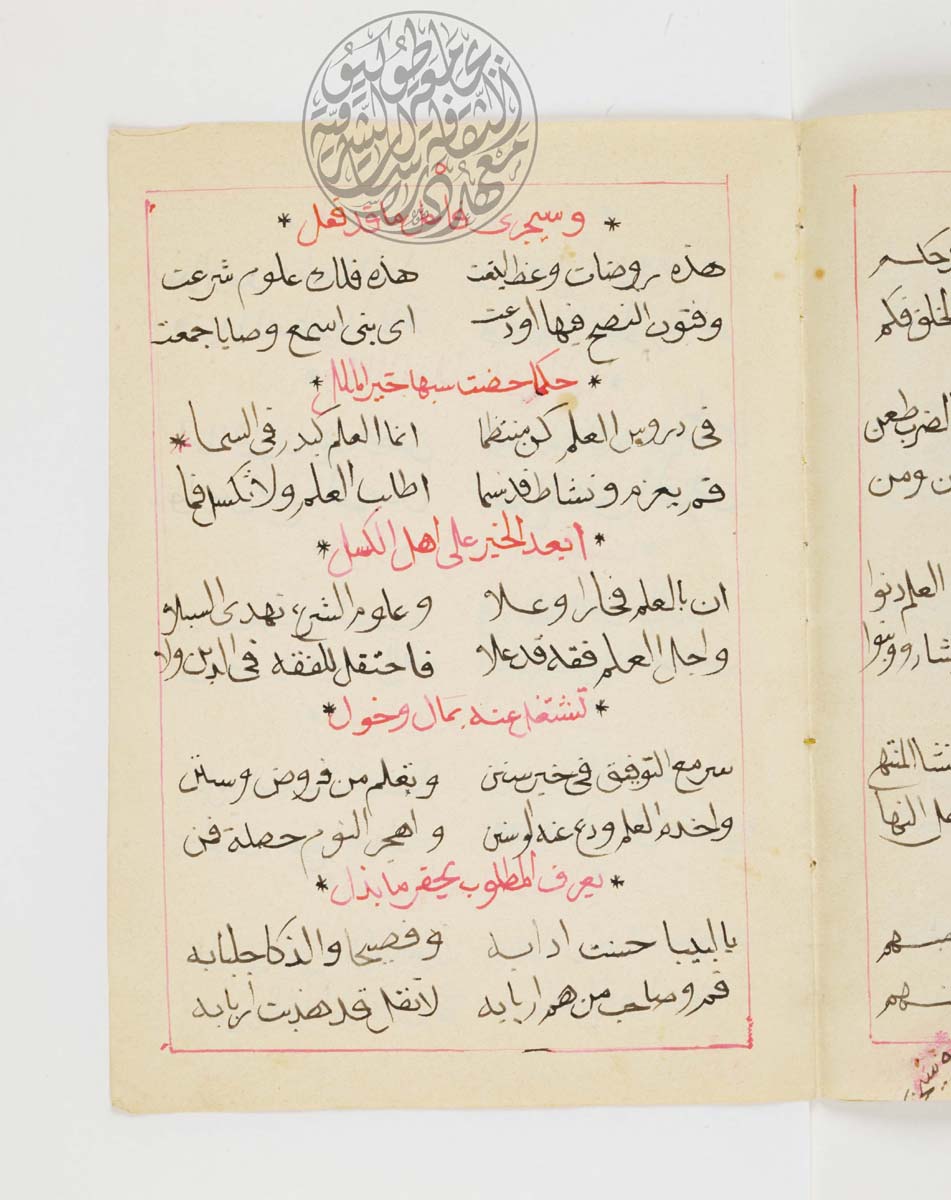 وسيجزى فاعل ما قد فعل
هذه روضات وعظ اينعت هذه فلك علوم شرعت
وفنون النصح فيها اودعت اى بنى اسمع وصايا جمعت
حكما خصت بها خير الملل
فى دروس العلم كن منتظما انما العلم كبدر فى السما
قم بعزم ونشاط قد سما اطلب العلم ولا تكسل فما
ابعد الخير على اهل الكسل
ان بالعلم فخارا وعلا وعلوم الشرع تهدى السبلا
واجل العلم فقه قد علا فاحتفل للفقه فى الدين ولا
تشتغل عنه بمال وخول
سر مع التوفيق فى خير سنن وتعلم من فروض وسنن
واخدم العلم ودع عنه الوسن واهجر النوم وحصله فمن
يعرف المطلوب يحقر ما بذل
يا لبيبا حسنت ادابه وفصيحا والذكا جلبابه
قم وصاحب من هم اربابه لا تقل قد ذهبت اربابه
وحكم
الخلق فكم
الضرب طعن
ومن
العلم دنوا
المنتهى